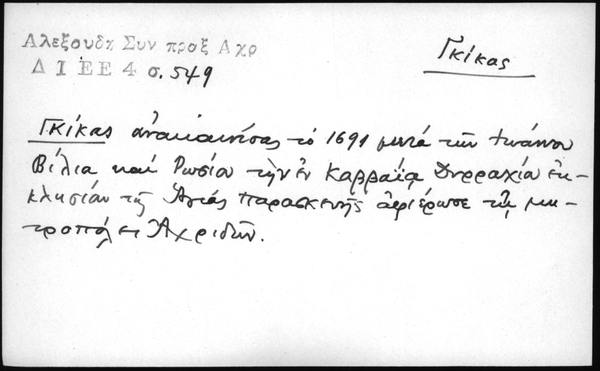 Αλεξουδη Συν προξ Αχρ
Γκίκας
Δ Ι Ε Ε 4 σ. 549
Γκίκας ἀνακαινήσας τὸ 1691 μετά τῶν Ἰωάννου
Βίλια καί Ρωσίου τὴν ἐν Καρραϊᾳ Δυρραχίᾳ ἐκ-
κλησίαν τῆς Ἁγίας Παρασκευῆς ἀφιέρωσε τῇ μη-
τροπόλει Ἀχριδῶν.